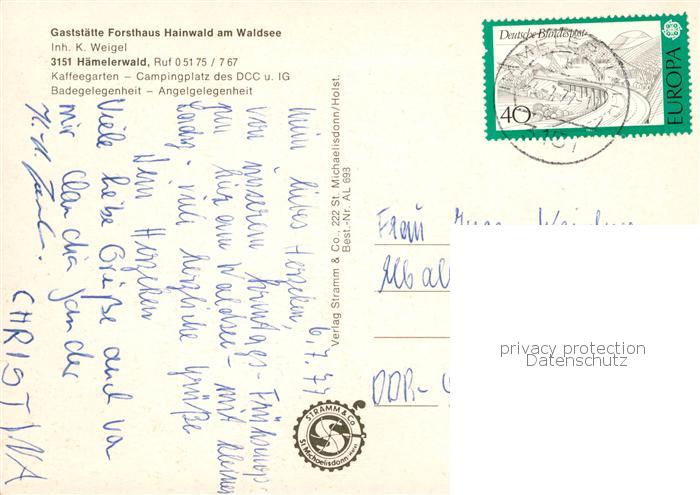 Gaststätte Forsthaus Hainwald am Waldsee
Inh. K. Weigel
3151 Hämelerwald, Ruf 0 51 75 / 7 67
Kaffeegarten – Campingplatz des DCC u. IG
Badegelegenheit – Angelgelegenheit
Deutsche Bundespost
40
EUROPA
3151
6.7.77
Mein liebes Herzchen,
von unserem Sonntags-Frühshop-
pen hier am Waldsee mit kleiner
viele herzliche Grüße
Dein Herzchen
Viele liebe Grüße auch von
mir Claudia
CHRISTINA
Verlag Stramm & Co., 222 St. Michaelisdonn/Holst.
Best.-Nr. AL 693
STRAMM & Co
St Michaelisdonn
Frau
DDR-
privacy protection
Datenschutz